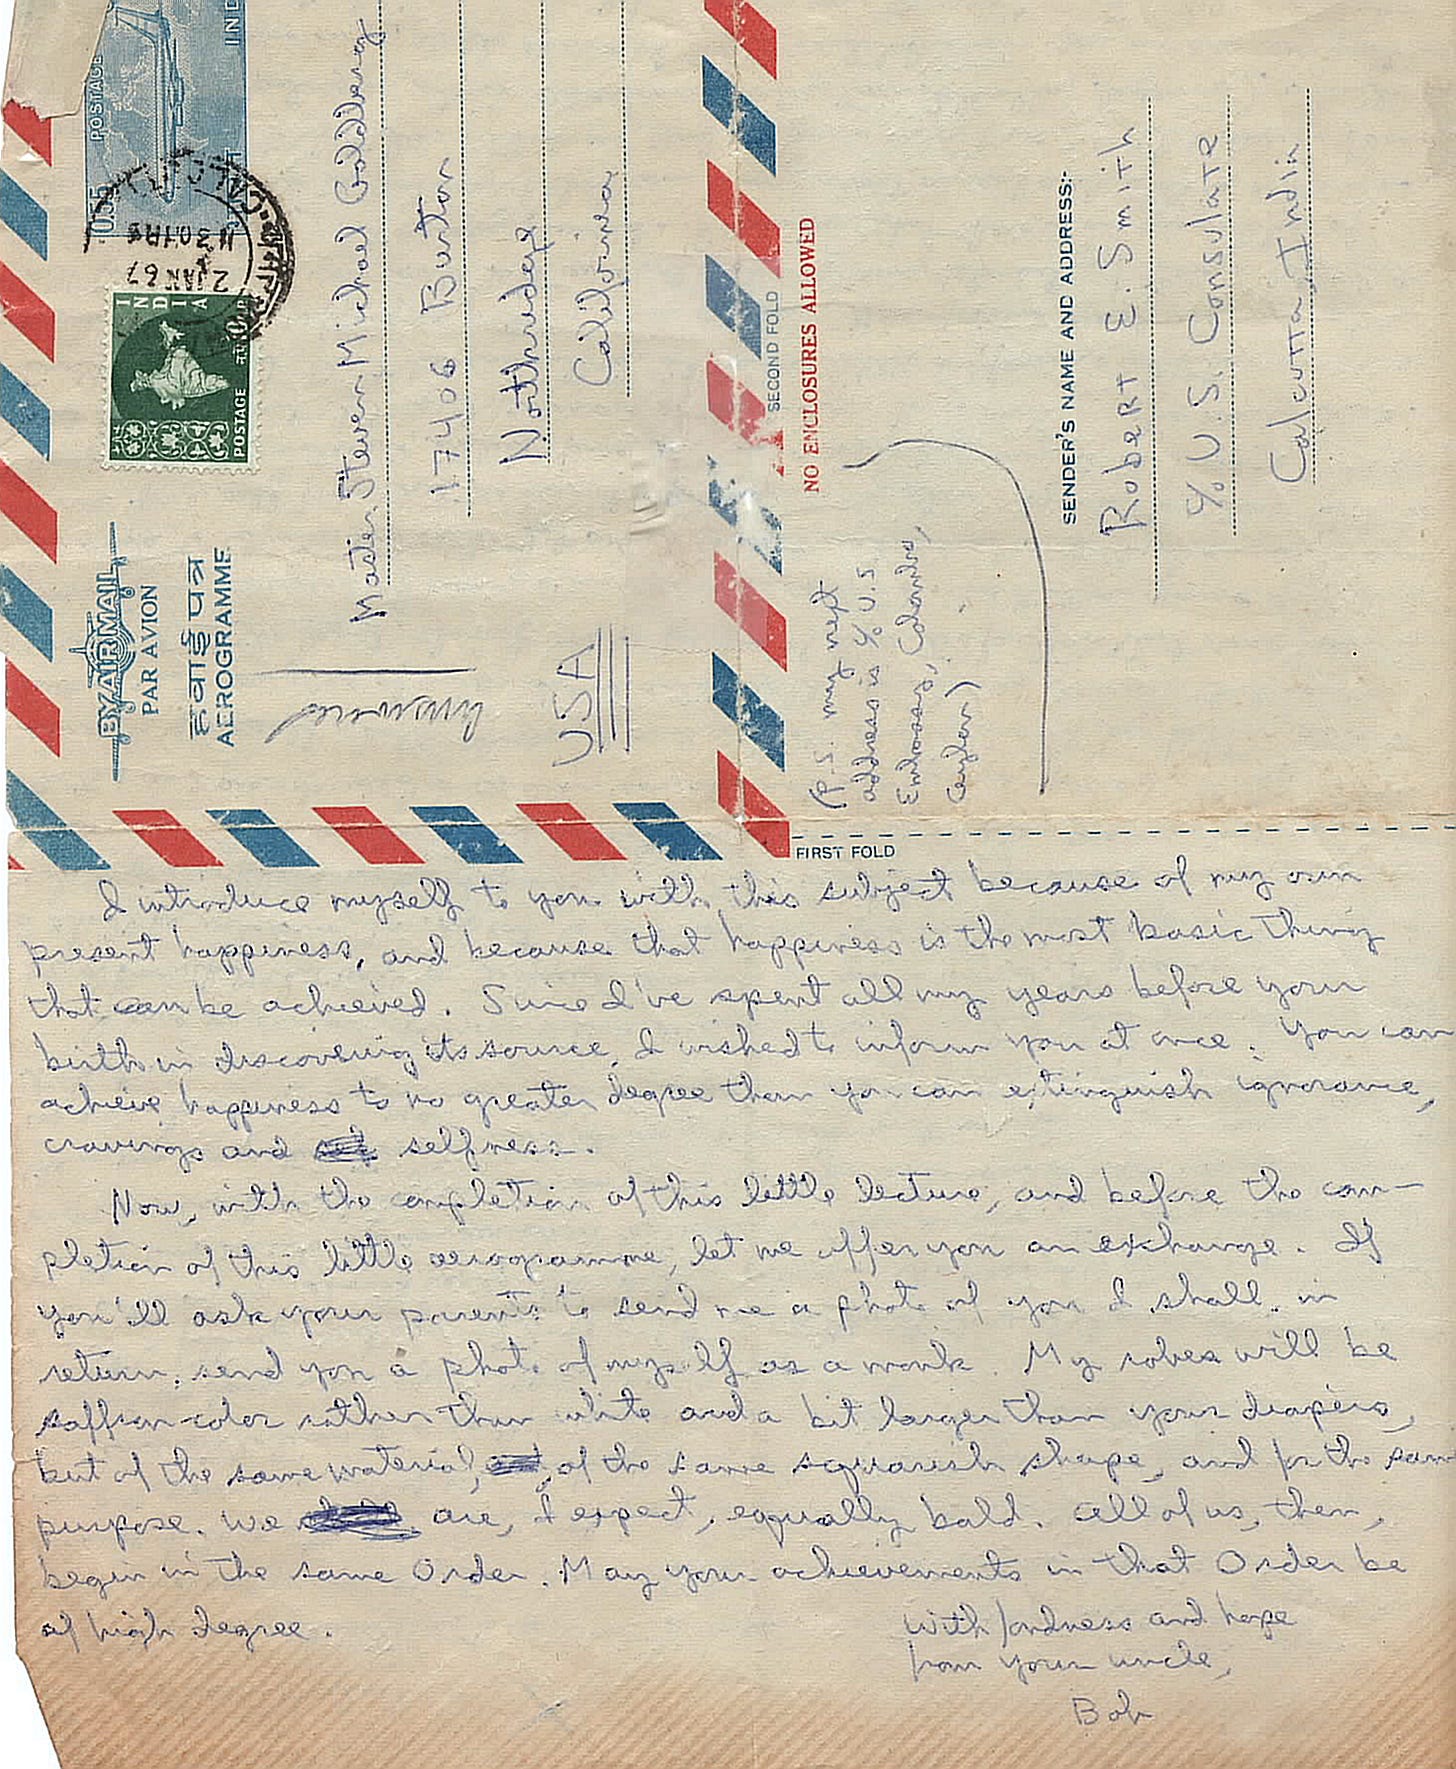 POSTAGE
IND
0.55
CALCUTTA
1130 HRS
2 JAN 67
INDIA
POSTAGE
न.पै. 10 N.P.
BY AIR MAIL
PAR AVION
हवाई पत्र
AEROGRAMME
answered
Master Steven Michael Goldberg
17406 Burton
Northridge
California
USA
SECOND FOLD
NO ENCLOSURES ALLOWED
(P.S. my next
address is % U.S.
Embassy, Colombo,
Ceylon)
SENDER'S NAME AND ADDRESS:-
Robert E. Smith
% U.S. Consulate
Calcutta, India
FIRST FOLD
I introduce myself to you with this subject because of my own
present happiness, and because that happiness is the most basic thing
that can be achieved. Since I've spent all my years before your
birth in discovering its source, I wished to inform you at once. You can
achieve happiness to no greater degree than you can extinguish ignorance,
cravings and selfness.
Now, with the completion of this little lecture, and before the com-
pletion of this little aerogramme, let me offer you an exchange. If
you'll ask your parents to send me a photo of you I shall, in
return, send you a photo of myself as a monk. My robes will be
saffron-color rather than white and a bit larger than your diapers,
but of the same material, of the same squarish shape, and for the same
purpose. We are, I expect, equally bald. All of us, then,
begin in the same Order. May your achievements in that Order be
of high degree.
With fondness and hope
from your uncle,
Bob